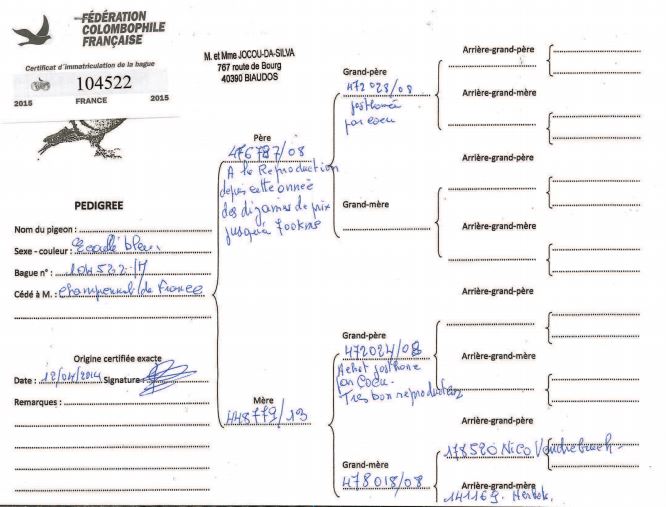 FÉDÉRATION
COLOMBOPHILE
FRANÇAISE
Certificat d'immatriculation de la bague
104522
2015 FRANCE 2015
M. et Mme JOCOU-DA-SILVA
767 route de Bourg
40390 BIAUDOS
PEDIGREE
Nom du pigeon :
Sexe - couleur : Ecaillé bleu
Bague n° : 104522 /
Cédé à M. : Championnat de France
Origine certifiée exacte
Date : 12/04/2014 Signature :
Remarques :
Père
476787/08
A la Reproduction
depuis cette année
des dizaines de prix
jusqu'à 700kms
Mère
448779/13
Grand-père
472028/08
par
Grand-mère
Grand-père
472024/08
Achat
par
Tres bon reproducteur
Grand-mère
478018/08
Arrière-grand-père
Arrière-grand-mère
Arrière-grand-père
Arrière-grand-mère
Arrière-grand-père
Arrière-grand-mère
Arrière-grand-père
178520 Nico
Arrière-grand-mère
141169